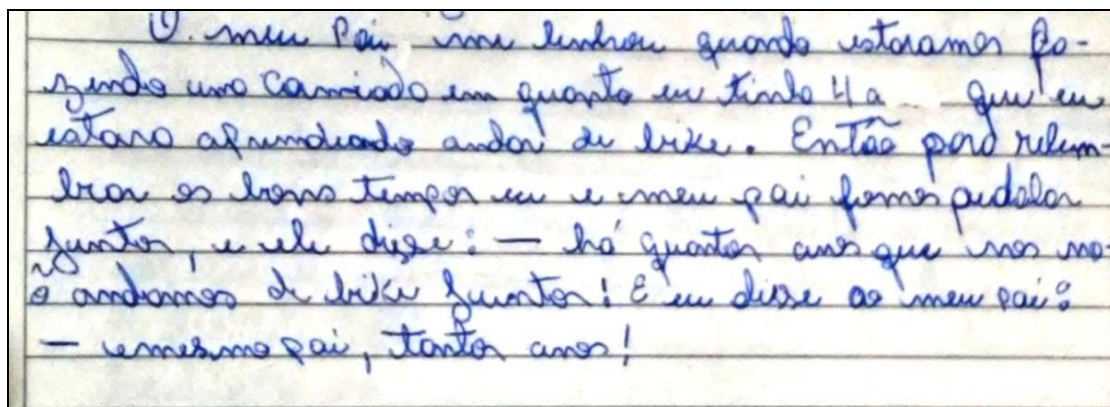 O meu Pai me lembrou quando estavamos fa-
zendo uma camiada em quanto eu tinha 4 a que eu
estava aprendendo andar de bike. Então para relem-
brar os bons tempos eu e meu pai fomos pedalar
juntos, e ele disse: — há quantos anos que nos na-
õ andamos de bike juntos! E eu disse ao meu pai:
— emesmo pai, tantos anos!